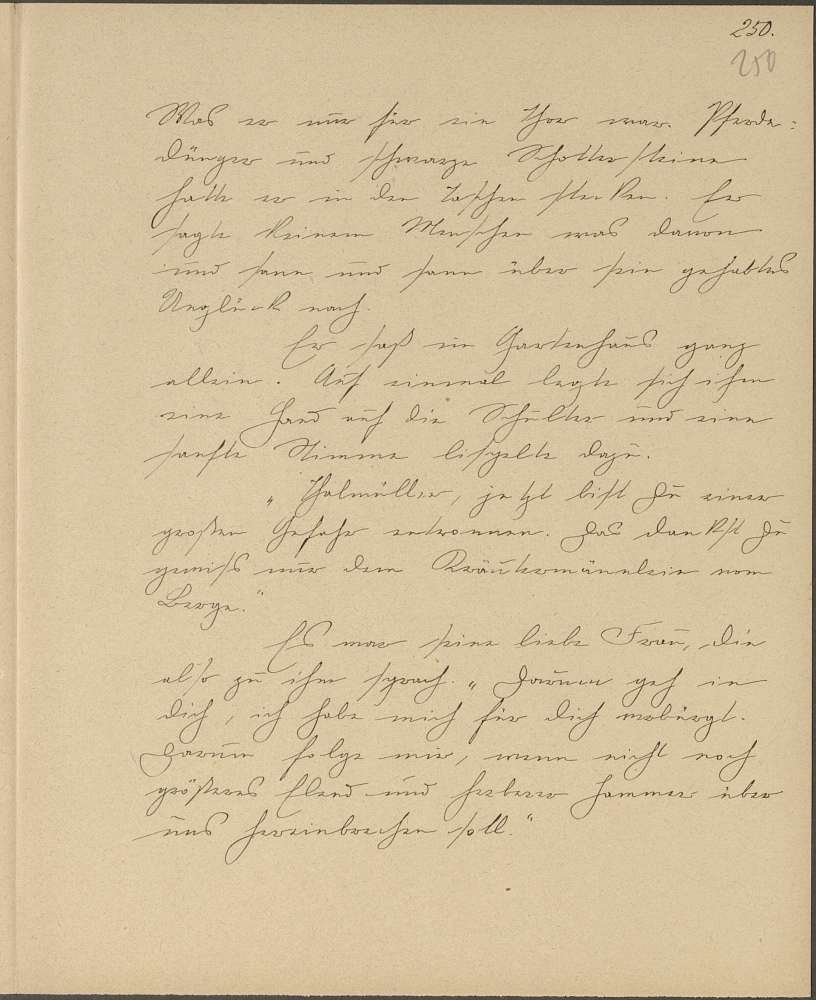 250.
250
Was er nur für ein Thor war. Pferde=
dünger und schwarze Schottersteine
hatte er in den Taschen stecken. Er
sagte keinem Menschen was davon
und sann und sann über sein gehabtes
Unglück nach.
Er saß im Gartenhaus ganz
allein. Auf einmal legte sich ihm
eine Hand auf die Schulter und eine
sanfte Stimme lispelte dazu.
„Thalmüller, jetzt bist Du einer
großen Gefahr entronnen. Das dankst Du
gewiss nur dem Kräutermännlein vom
Berge.“
Es war seine liebe Frau, die
also zu ihm sprach. „Darum geh in
dich, ich habe mich für dich verbürgt.
Darum folge mir, wenn nicht noch
größeres Elend und herberer Jammer über
uns hereinbrechen soll.“